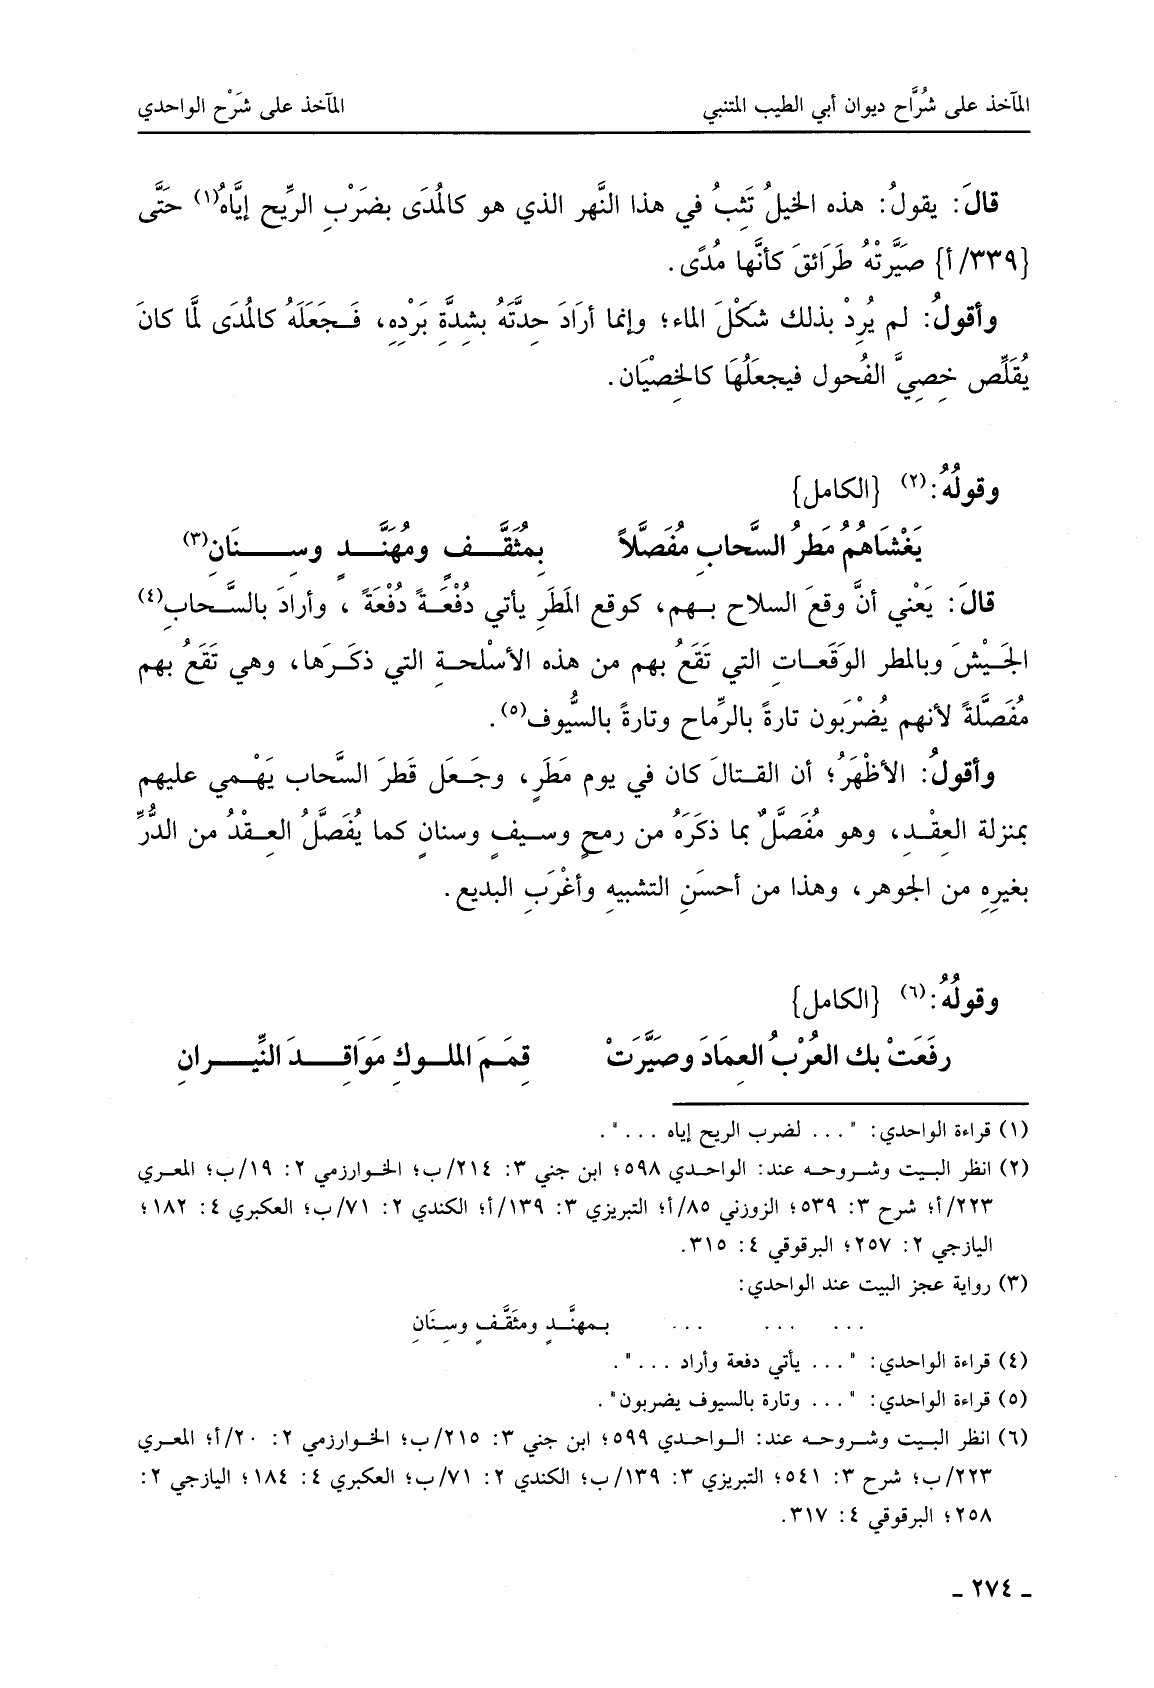 المآخذ على شُرَّاح ديوان أبي الطيب المتنبي المآخذ على شَرْح الواحدي
قالَ: يقولُ: هذه الخيلُ تَثِبُ في هذا النَّهر الذي هو كالمُدَى بضَرْبِ الرِّيح إيَّاهُ(١) حَتَّى
{٣٣٩/ أ} صَيَّرتْهُ طَرَائقَ كأنَّها مُدًى.
وأقولُ: لم يُرِدْ بذلك شَكْلَ الماء؛ وإنما أرَادَ حِدَّتَهُ بشِدَّةِ بَرْدِهِ، فَجَعَلَهُ كالمُدَى لمَّا كانَ
يُقَلِّص خِصِيَّ الفُحول فيجعَلُهَا كالخِصْيَان.
وقولُهُ:(٢) {الكامل}
يَغْشَاهُمُ مَطرُ السَّحابِ مُفَصَّلاً بمُثَقَّفٍ ومُهَنَّدٍ وسِنَانِ(٣)
قالَ: يَعْني أنَّ وقعَ السلاح بهم، كوقع المَطَرِ يأتي دُفْعَةً دُفْعَةً، وأرادَ بالسَّحابِ(٤)
الجَيْشَ وبالمطر الوَقَعاتِ التي تَقَعُ بهم من هذه الأسْلحةِ التي ذكَرَها، وهي تَقَعُ بهم
مُفَصَّلةً لأنهم يُضْرَبون تارةً بالرِّماح وتارةً بالسُّيوف(٥).
وأقولُ: الأظْهَرُ؛ أن القتالَ كان في يوم مَطَرٍ، وجَعَل قَطرَ السَّحاب يَهْمي عليهم
بمنزلة العِقْدِ، وهو مُفَصَّلٌ بما ذكَرَهُ من رمحٍ وسيفٍ وسنانٍ كما يُفَصَّلُ العِقْدُ من الدُّرِّ
بغيرِهِ من الجوهر، وهذا من أحسَنِ التشبيهِ وأغْرَبِ البديع.
وقولُهُ:(٦) {الكامل}
رفَعَتْ بك العُرْبُ العِمَادَ وصَيَّرَتْ قِمَمَ الملوكِ مَوَاقِدَ النِّيرانِ
(١) قراءة الواحدي: "... لضرب الريح إياه ...".
(٢) انظر البيت وشروحه عند: الواحدي ٥٩٨؛ ابن جني ٣: ٢١٤/ ب؛ الخوارزمي ٢: ١٩/ ب؛ المعري
٢٢٣/ أ؛ شرح ٣: ٥٣٩؛ الزوزني ٨٥/ أ؛ التبريزي ٣: ١٣٩/ أ؛ الكندي ٢: ٧١/ ب؛ العكبري ٤: ١٨٢؛
اليازجي ٢: ٢٥٧؛ البرقوقي ٤: ٣١٥.
(٣) رواية عجز البيت عند الواحدي:
... ... ... بمهنَّدٍ ومثقَّفٍ وسِنَانِ
(٤) قراءة الواحدي: "... يأتي دفعة وأراد ...".
(٥) قراءة الواحدي: "... وتارة بالسيوف يضربون".
(٦) انظر البيت وشروحه عند: الواحدي ٥٩٩؛ ابن جني ٣: ٢١٥/ ب؛ الخوارزمي ٢: ٢٠/ أ؛ المعري
٢٢٣/ ب؛ شرح ٣: ٥٤١؛ التبريزي ٣: ١٣٩/ ب؛ الكندي ٢: ٧١/ ب؛ العكبري ٤: ١٨٤؛ اليازجي ٢:
٢٥٨؛ البرقوقي ٤: ٣١٧.
ـ ٢٧٤ ـ